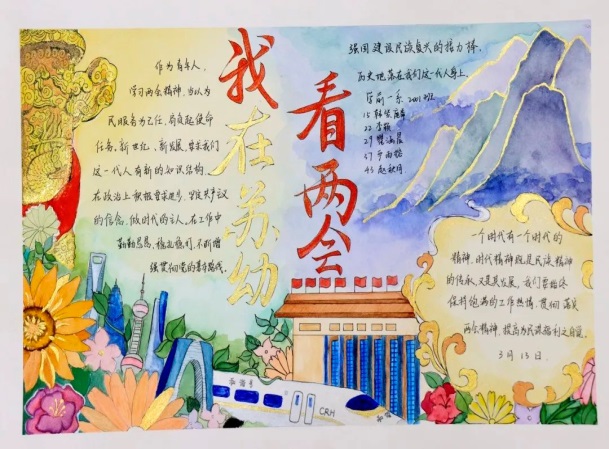 我在苏幼
看两会
作为青年人,
学习两会精神,当以为
民服务为己任,肩负起使命
任务,新世纪、新发展,要求我们
这一代人有新的知识结构,
在政治上积极要求进步,坚定共产主义
的信念,做时代的主人。在工作中
勤勤恳恳,稳扎稳打,不断增
强贯彻党的基本路线。
强国建设民族复兴的接力棒,
历史地落在我们这一代人身上。
一个时代有一个时代的
精神,时代精神既是民族精神
的传承,又是其发展。我们要始终
保持饱满的工作热情,贯彻落实
两会精神,提高为民谋福利之自觉。
3月13日
和谐号
CRH